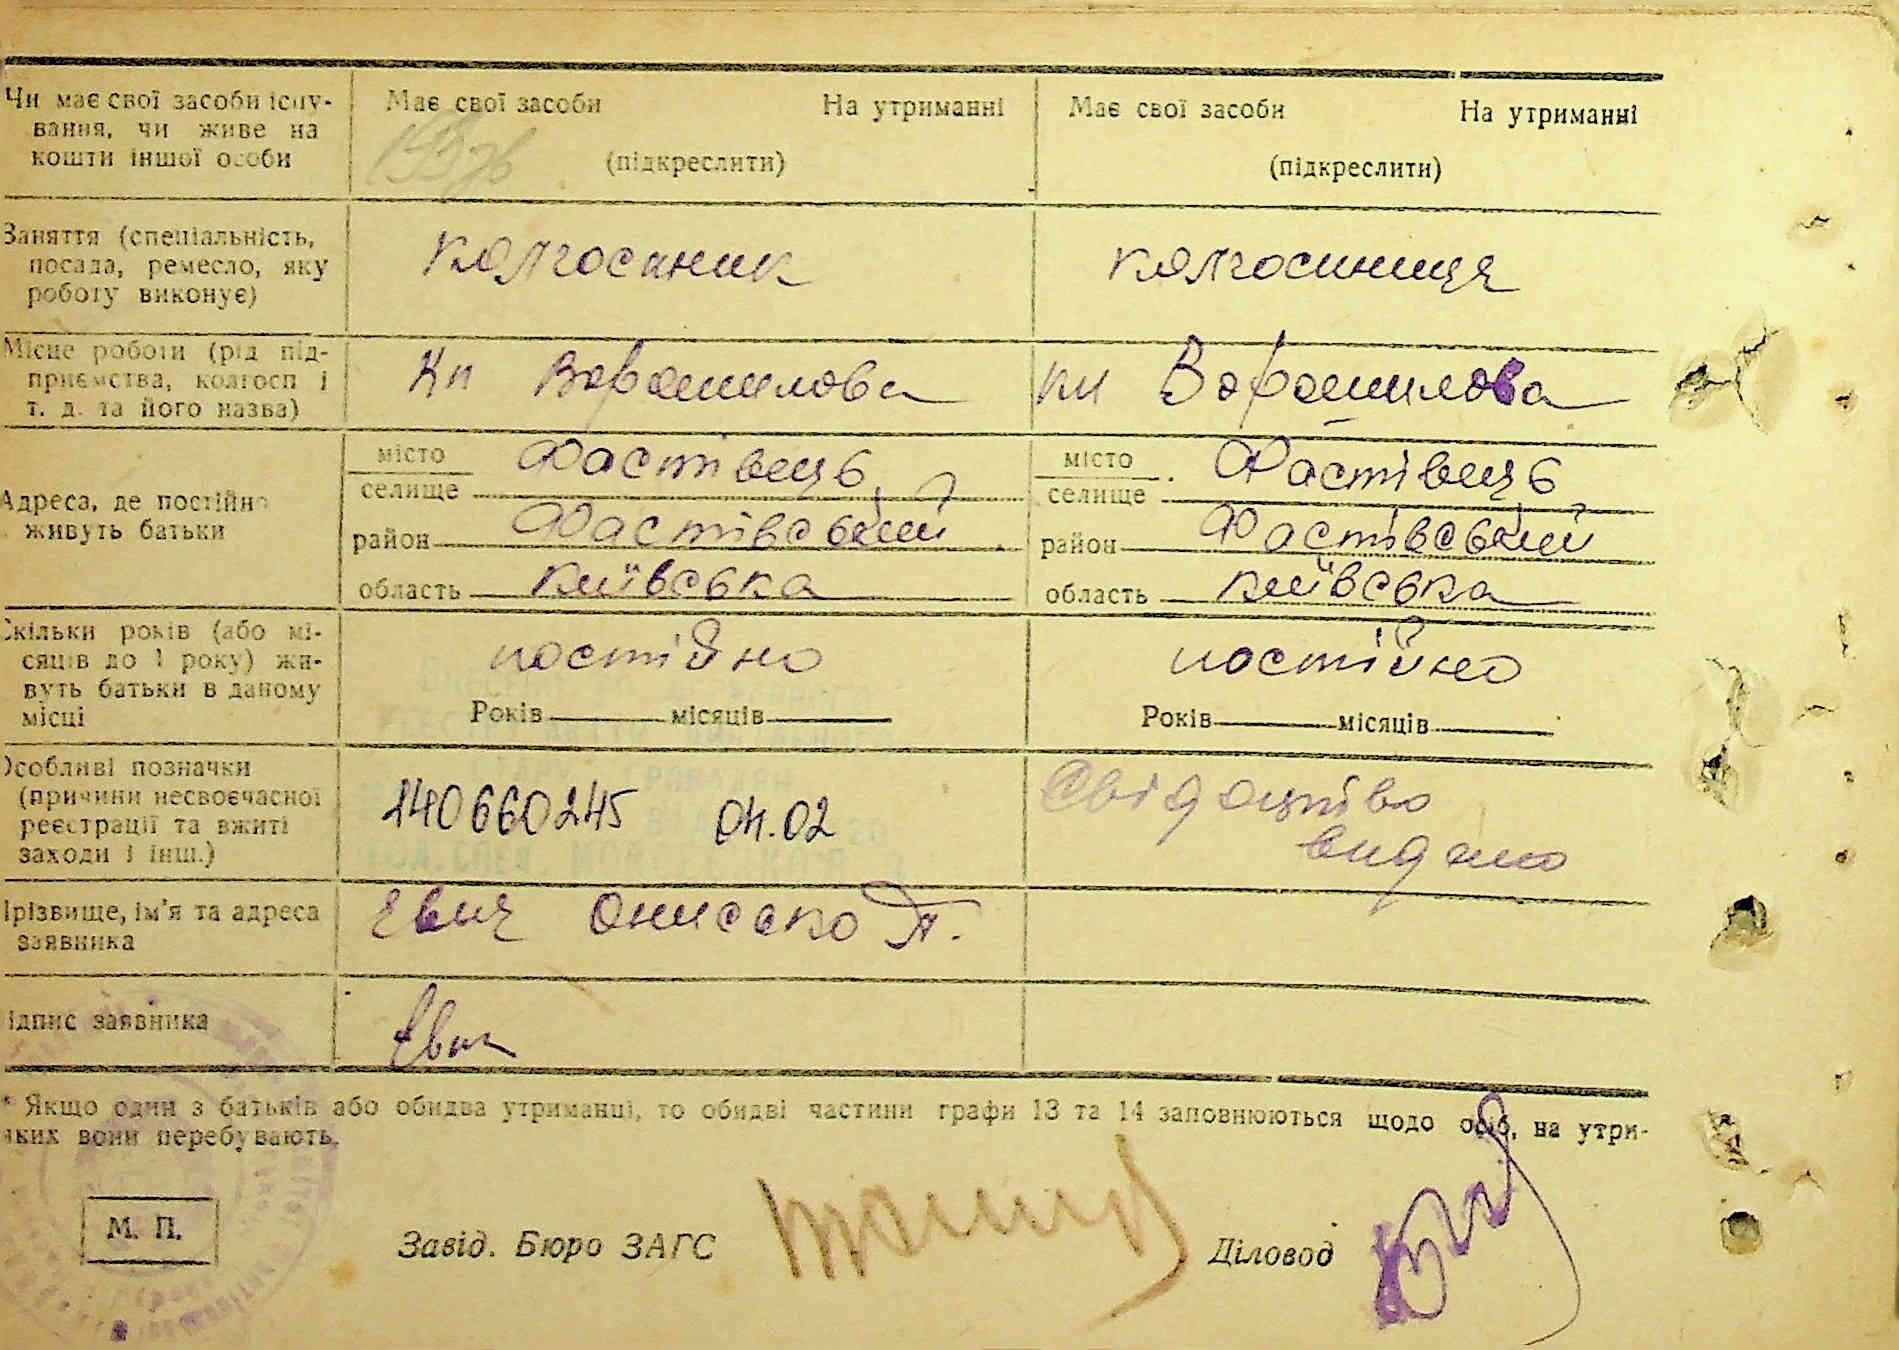 Чи має свої засоби існу-
вання, чи живе на
кошти іншої особи
Має свої засоби На утриманні
(підкреслити)
Має свої засоби На утриманні
(підкреслити)
Заняття (спеціальність,
посада, ремесло, яку
роботу виконує)
колгоспник
колгоспниця
Місце роботи (рід під-
приємства, колгосп і
т. д. та його назва)
Ворошилова
Ворошилова
Адреса, де постійно
живуть батьки
місто
селище
Фастівець
район Фастівський
область Київська
місто
селище
Фастівець
район Фастівський
область Київська
Скільки років (або мі-
сяців до 1 року) жи-
вуть батьки в даному
місці
постійно
Років місяців
постійно
Років місяців
Особливі позначки
(причини несвоєчасної
реєстрації та вжиті
заходи і інш.)
140660245 04.02
Свідоцтво
видано
Прізвище, ім'я та адреса
заявника
Онисько П.
Підпис заявника
* Якщо один з батьків або обидва утриманці, то обидві частини графи 13 та 14 заповнюються щодо осіб, на утри-
яких вони перебувають.
М. П.
Завід. Бюро ЗАГС
Діловод